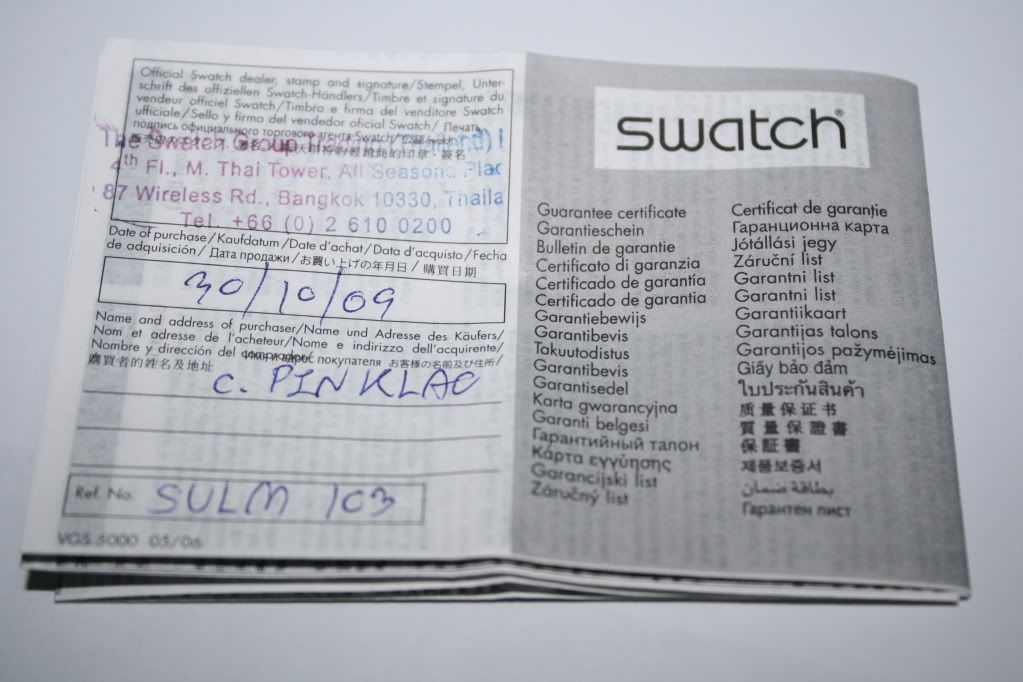 Official Swatch dealer, stamp and signature/Stempel, Unter-
schrift des offiziellen Swatch-Händlers/Timbre et signature du
vendeur officiel Swatch/Timbro e firma del venditore Swatch
ufficiale/Sello y firma del vendedor oficial Swatch/ Печать
подпись официального торгового агента Swatch/
The Swatch Group
4th Fl., M. Thai Tower, All Seasons Plac
87 Wireless Rd., Bangkok 10330, Thaila
Tel. +66 (0) 2 610 0200
Date of purchase/Kaufdatum/Date d'achat/Data d'acquisto/Fecha
de adquisición/Дата продажи/お買い上げの年月日/購買日期
30/10/09
Name and address of purchaser/Name und Adresse des Käufers/
Nom et adresse de l'acheteur/Nome e indirizzo dell'acquirente/
Nombre y dirección del покупателя お客様の名前及び住所/
購買者的姓名及地址
C. PINKLAO
Ref. No. SULM 103
VGS 5000 05/06
swatch®
Guarantee certificate
Garantieschein
Bulletin de garantie
Certificato di garanzia
Certificado de garantía
Certificado de garantia
Garantiebewijs
Garantibevis
Takuutodistus
Garantibevis
Garantisedel
Karta gwarancyjna
Garanti belgesi
Гарантийный талон
Κάρτα εγγύησης
Garancijski list
Záručný list
Certificat de garanție
Гаранционна карта
Jótállási jegy
Záruční list
Garantni list
Garantni list
Garantiikaart
Garantijas talons
Garantijos pažymėjimas
Giấy bảo đảm
ใบประกันสินค้า
质量保证书
質量保證書
保証書
제품보증서
بطاقة ضمان
Гарантен лист